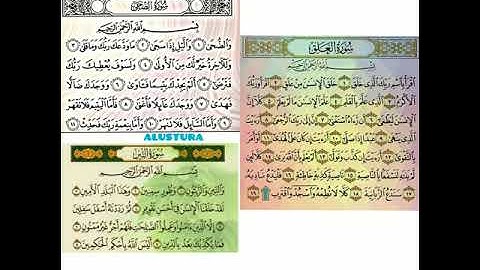 سُورَةُ الضُّحَىٰ
بِسْمِ اللَّهِ الرَّحْمَٰنِ الرَّحِيمِ
وَالضُّحَىٰ ١ وَاللَّيْلِ إِذَا سَجَىٰ ٢ مَا وَدَّعَكَ رَبُّكَ وَمَا قَلَىٰ ٣
وَلَلْآخِرَةُ خَيْرٌ لَّكَ مِنَ الْأُولَىٰ ٤ وَلَسَوْفَ يُعْطِيكَ رَبُّكَ
فَتَرْضَىٰ ٥ أَلَمْ يَجِدْكَ يَتِيمًا فَآوَىٰ ٦ وَوَجَدَكَ ضَالًّا
فَهَدَىٰ ٧ وَوَجَدَكَ عَائِلًا فَأَغْنَىٰ ٨ فَأَمَّا الْيَتِيمَ فَلَا تَقْهَرْ
٩ وَأَمَّا السَّائِلَ فَلَا تَنْهَرْ ١٠ وَأَمَّا بِنِعْمَةِ رَبِّكَ فَحَدِّثْ ١١
ALUSTURA
سُورَةُ التِّينِ
بِسْمِ اللَّهِ الرَّحْمَٰنِ الرَّحِيمِ
وَالتِّينِ وَالزَّيْتُونِ ١ وَطُورِ سِينِينَ ٢ وَهَٰذَا الْبَلَدِ الْأَمِينِ ٣
لَقَدْ خَلَقْنَا الْإِنسَانَ فِي أَحْسَنِ تَقْوِيمٍ ٤ ثُمَّ رَدَدْنَاهُ أَسْفَلَ سَافِلِينَ
٥ إِلَّا الَّذِينَ آمَنُوا وَعَمِلُوا الصَّالِحَاتِ فَلَهُمْ أَجْرٌ غَيْرُ مَمْنُونٍ
٦ فَمَا يُكَذِّبُكَ بَعْدُ بِالدِّينِ ٧ أَلَيْسَ اللَّهُ بِأَحْكَمِ الْحَاكِمِينَ ٨
سُورَةُ الْعَلَقِ
بِسْمِ اللَّهِ الرَّحْمَٰنِ الرَّحِيمِ
اقْرَأْ بِاسْمِ رَبِّكَ الَّذِي خَلَقَ ١ خَلَقَ الْإِنسَانَ مِنْ عَلَقٍ ٢ اقْرَأْ وَرَبُّكَ
الْأَكْرَمُ ٣ الَّذِي عَلَّمَ بِالْقَلَمِ ٤ عَلَّمَ الْإِنسَانَ مَا لَمْ يَعْلَمْ ٥ كَلَّا إِنَّ
الْإِنسَانَ لَيَطْغَىٰ ٦ أَن رَّآهُ اسْتَغْنَىٰ ٧ إِنَّ إِلَىٰ رَبِّكَ الرُّجْعَىٰ ٨ أَرَأَيْتَ
الَّذِي يَنْهَىٰ ٩ عَبْدًا إِذَا صَلَّىٰ ١٠ أَرَأَيْتَ إِن كَانَ عَلَى الْهُدَىٰ ١١ أَوْ أَمَرَ
بِالتَّقْوَىٰ ١٢ أَرَأَيْتَ إِن كَذَّبَ وَتَوَلَّىٰ ١٣ أَلَمْ يَعْلَم بِأَنَّ اللَّهَ يَرَىٰ ١٤ كَلَّا لَئِن
لَّمْ يَنتَهِ لَنَسْفَعًا بِالنَّاصِيَةِ ١٥ نَاصِيَةٍ كَاذِبَةٍ خَاطِئَةٍ ١٦ فَلْيَدْعُ نَادِيَهُ
١٧ سَنَدْعُ الزَّبَانِيَةَ ١٨ كَلَّا لَا تُطِعْهُ وَاسْجُدْ وَاقْتَرِب ۩ ١٩